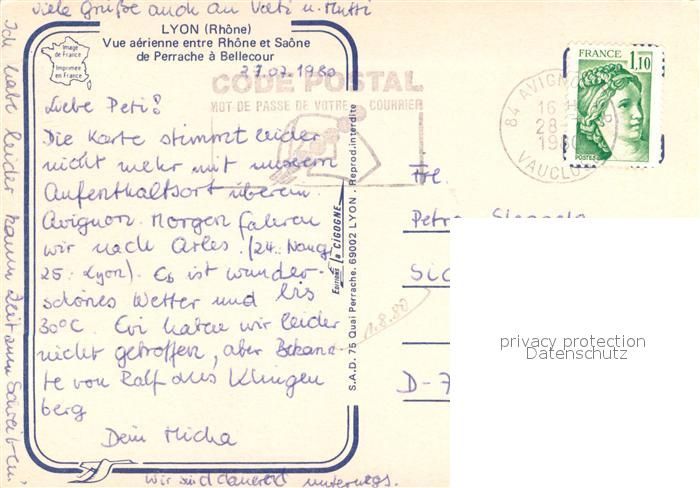 viele Grüße auch an Vati u. Mutti
LYON (Rhône)
Vue aérienne entre Rhône et Saône
de Perrache à Bellecour
Image
de France
Imprimée
en France
27.07.1980
Liebe Peti!
Die Karte stimmt leider
nicht mehr mit unserem
Aufenthaltsort überein.
Avignon. Morgen fahren
wir nach Arles. (24.: Nancy
25.: Lyon). Es ist wunder-
schönes Wetter und bis
30°C. Evi haben wir leider
nicht getroffen, aber Bekann-
te von Ralf aus Klingen
berg
Dein Micha
Wir sind dauernd unterwegs.
Ich habe leider kaum Zeit zum Schreiben,
CODE POSTAL
MOT DE PASSE DE VOTRE COURRIER
Editions la CIGOGNE
S.A.D. 75 Quai Perrache, 69002 LYON . Reprod. interdite
84 AVIGNON
16 H
28
1980
VAUCLUSE
FRANCE
1,10
POSTES
Frl.
Petra
D-7
1.8.80
privacy protection
Datenschutz